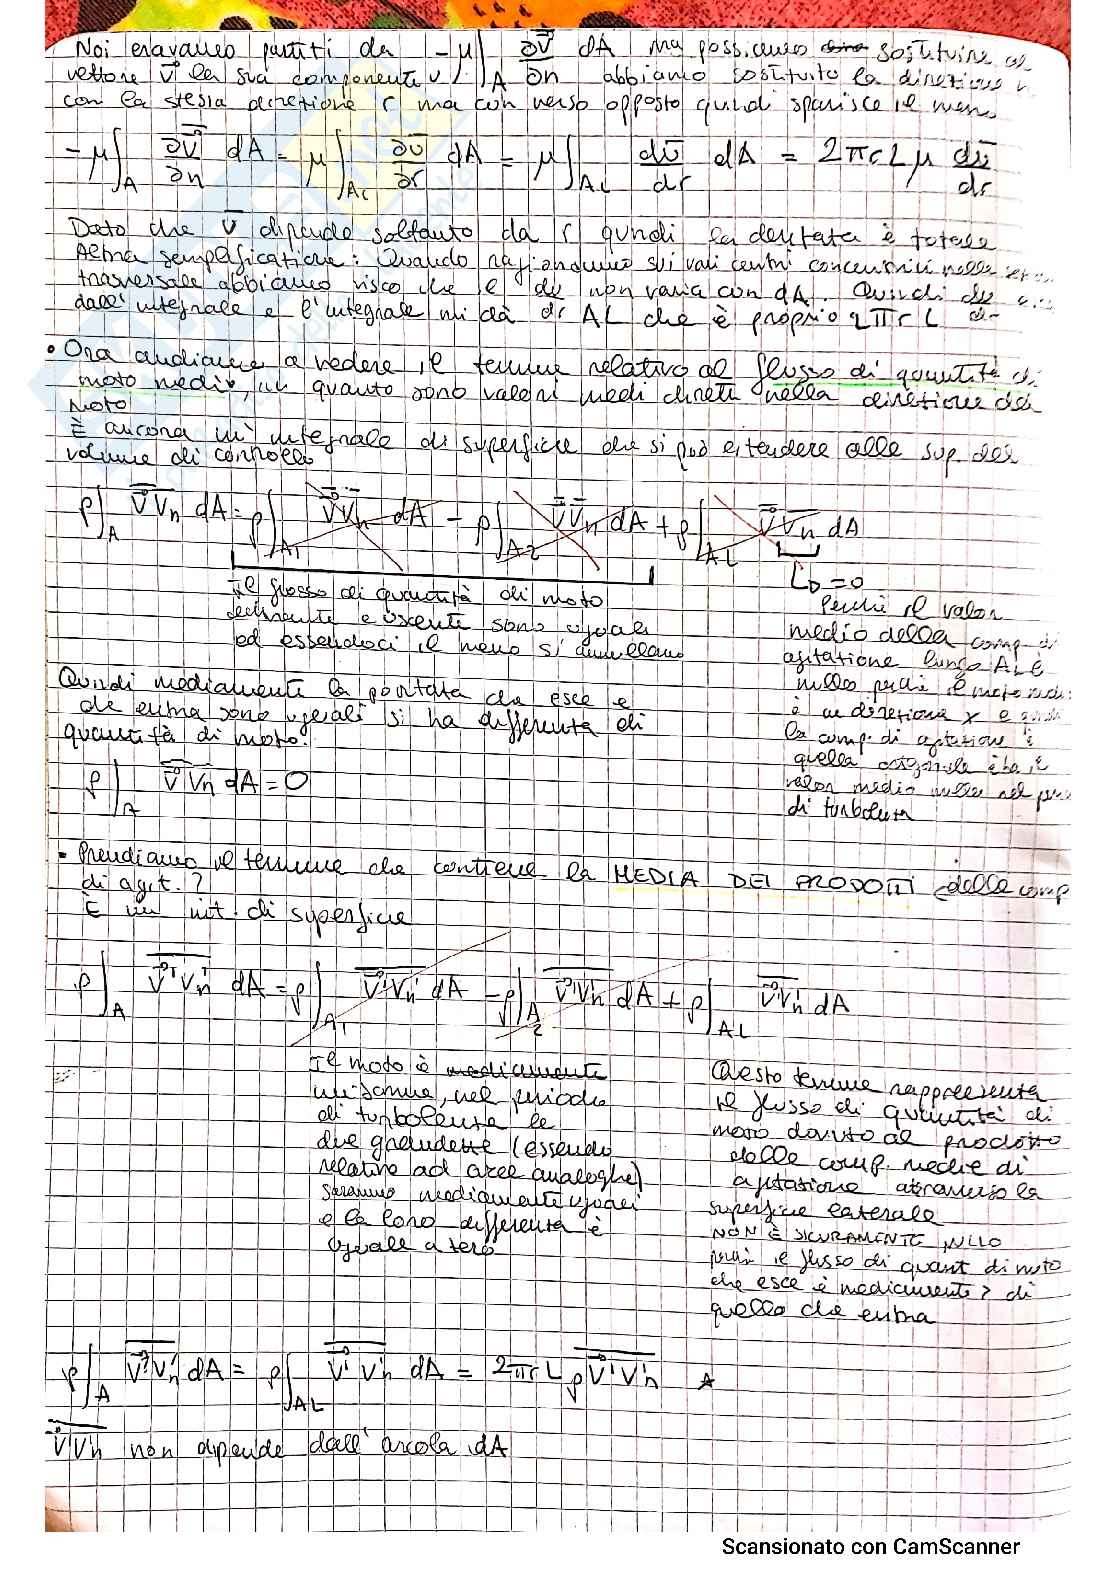 Noi eravamo partiti da -μ∫_A ∂v̄/∂n dA ma possiamo sostituire al
vettore v̄ la sua componente v abbiamo sostituito la direzione n
con la stessa direzione r ma con verso opposto quindi sparisce il meno
-μ∫_A ∂v̄/∂n dA = μ∫_AL ∂v̄/∂r dA = μ∫_AL dv̄/dr dA = 2πrLμ dv̄/dr
Dato che v̄ dipende soltanto da r quindi la derivata è totale
Altra semplificazione: Quando ragioniamo sui vari centri concentrici nella
trasversale abbiamo visto che e dv non varia con dA. Quindi dv
dall'integrale e l'integrale mi dà di AL che è proprio 2πrL dr
• Ora andiamo a vedere il termine relativo al flusso di quantità di
moto medio, in quanto sono valori medi diretti nella direzione del
moto
È ancora un integrale di superficie che si può estendere alle sup. del
volume di controllo
ρ∫_A v̄ v̄n dA = ρ∫_A1 v̄ v̄n dA - ρ∫_A2 v̄ v̄n dA + ρ∫_AL v̄ v̄n dA
↳ =0
Il flusso di quantità di moto
entrante e uscente sono uguali
ed essendoci il meno si annullano
Perché il valor
medio della comp. di
agitazione lungo AL è
nullo perché il moto
è in direzione x e quindi
la comp. di agitazione è
quella ortogonale e ha il
valor medio nullo nel
di turbolenza
Quindi mediamente la portata che esce e
che entra sono uguali si ha differenza di
quantità di moto.
ρ∫_A v̄ v̄n dA = 0
• Prendiamo il termine che contiene la MEDIA DEI PRODOTTI delle comp
di agit.?
È un int. di superficie
ρ∫_A v'vn' dA = ρ∫_A1 v'vn' dA - ρ∫_A2 v'vn' dA + ρ∫_AL v'vn' dA
Il moto è mediamente
uniforme, nel periodo
di turbolenza le
due grandezze (essendo
relative ad aree analoghe)
saranno mediamente uguali
e la loro differenza è
uguale a zero
Questo termine rappresenta
il flusso di quantità di
moto dovuto al prodotto
delle comp. medie di
agitazione attraverso la
superficie laterale
NON È SICURAMENTE NULLO
perché il flusso di quant. di moto
che esce è mediamente > di
quello che entra
ρ∫_A v'vn' dA = ρ∫_AL v'vn' dA = 2πrL ρ v'vn' *
v'vn' non dipende dall'areola dA
Scansionato con CamScanner